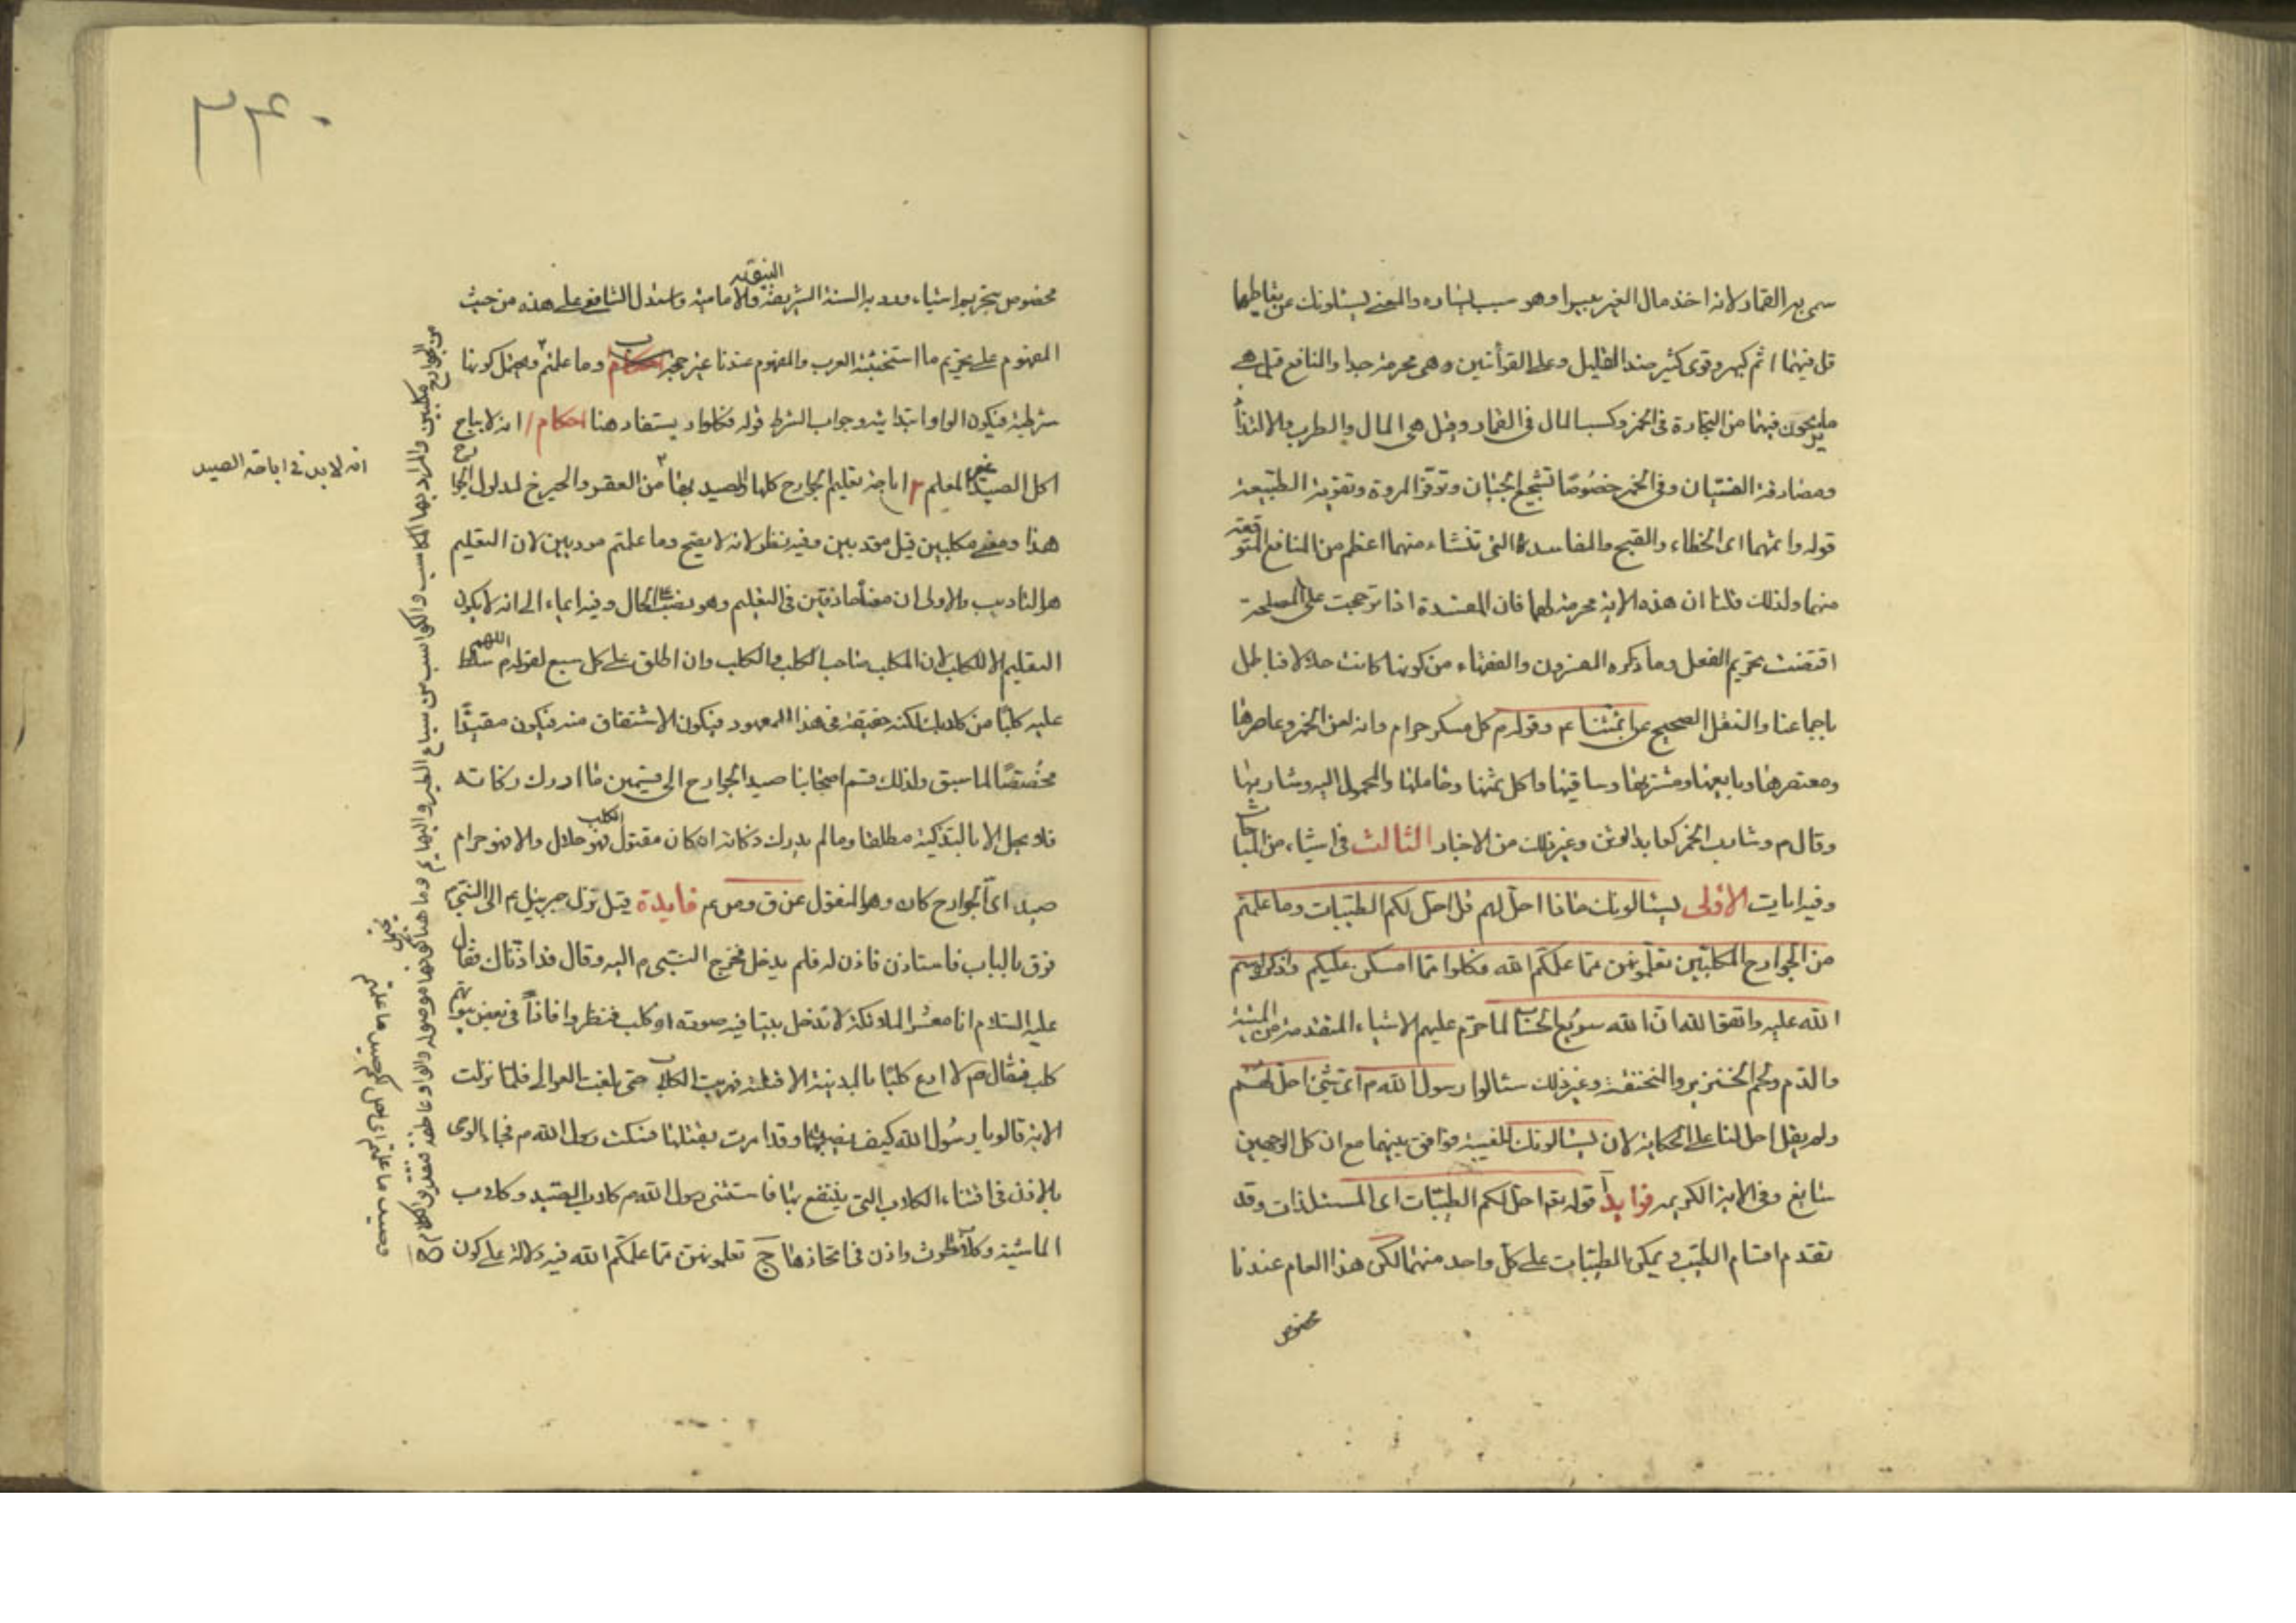 سمی به القمار لانه اخذ مال الغیر بیسر او هو سبب لیساره والمعنی یسئلونک عن تعاطیهما
قل فیهما اثم کبیر وقری کثیر ضد القلیل وعلی القرأتین وهی محرمة جدا والمنافع قیل هی
ما یربحون فیهما من التجارة فی الخمر وکسب المال فی القمار وقیل هی المال والطرب والالتذاذ
ومصادفة الفتیان وفی الخمر خصوصًا تشجیع الجبان وتوفر المروة وتقویة الطبیعة
قوله واثمهما ای الخطاء والقبح والمفاسدة التی تنشاء منهما اعظم من المنافع المتوقعة
منهما ولذلک قلنا ان هذه الایة محرمة لهما فان المفسدة اذا ترجحت علی المصلحة
اقتضت تحریم الفعل وما ذکره المفسرون والفقهاء من کونها کانت حلالا فباطل
باجماعنا والنقل الصحیح عن ائمتنا ع م وقوله م کل مسکر حرام وانه لعن الخمر وعاصرها
ومعتصرها وبایعها ومشتریها وساقیها واکل ثمنها وحاملها والمحمول الیه وشاربها
وقال م وشارب الخمر کعابد الوثن وغیر ذلک من الاخبار الثالث فی اشیاء من المباحات
وفیه ایات الاولی یسئالونک ماذا احل لهم قل احل لکم الطیبات وما علمتم
من الجوارح المکلبین تعلمونهن مما علمکم الله فکلوا مما امسکن علیکم واذکروا اسم
الله علیه واتقوا الله ان الله سریع الحساب لما حرم علیهم الاشیاء المتقدمة من المیتة
والدم ولحم الخنزیر والمنخنقة وغیر ذلک سئالوا رسول الله م ای شیء احل لهم
ولم یقل احل لنا علی الحکایة لان یسئالونک للغیبة فوافق بینهما مع ان کل الوجهین
سایغ وفی الایة الکریمه فوایدآ قوله تع احل لکم الطیبات ای المستلذات وقد
تقدم اقسام الطیب ویمکن الطیبات علی کل واحد منهما لکن هذا العام عندنا
مخصوص
مخصوص بتحریم اشیاء ورد به السنة الشریفة النبویه والامامیة واستدل الشافعی علی هذه من حیث
المفهوم علی تحریم ما استخبثته العرب والمفهوم عندنا غیر حجة ب وما علمتم ویحتمل کونها
شرطیة فیکون الواو ابتدائیه وجواب الشرط قوله فکلوا ویستفاد هنا احکام ا انه لا یباح
اکل الصید غیر المعلم ۲ اباحة تعلیم الجوارح کلها والصید بها ۳ من العقر والجرح لمدلول الجوارح
هذا ومعنی مکلبین قیل مؤدبین وفیه نظر لانه لا یصح وما علمتم مودبین لان التعلیم
هو التادیب والاولی ان معناه حاذقین فی التعلیم وهو نصب علی الحال وفیه ایماء الی انه لا یکون
التعلیم الا للکلب لان المکلب صاحب الکلب والکلب وان اطلق علی کل سبع لقوله م اللهم سلط
علیه کلبًا من کلابک لکنه حقیقة فی هذا المعهود فیکون الاشتقاق منه فیکون مقیدًا
مخصصًا لما سبق ولذلک قسم اصحابنا صید الجوارح الی قسمین ما ادرک زکاته
فلا یحل الا بالتذکیة مطلقا وما لم یدرک ذکاته ان کان مقتول الکلب فهو حلال والا فهو حرام
صید ای الجوارح کان وهو المنقول عن ق وص ع م فایدة قیل نزل جبریئل ع م الی النبی م
فدق بالباب فاستاذن فاذن له فلم یدخل فخرج النبی م الیه وقال قد اذناک فقال
علیه السلام انا معشر الملائکة لا ندخل بیتا فیه صورة او کلب فنظروا فاذاً فی بعض بیوتهم
کلب فقال م لا ادع کلبًا بالمدینة الا قتلته فهربت الکلاب حتی بلغت العوالی فلما نزلت
الایة قالوا یا رسول الله کیف نصید بها وقد امرت بقتلها فسکت رسول الله م فجاء الوحی
بالاذن فی اقتناء الکلاب التی ینتفع بها فاستثنی رسول الله م کلاب الصید وکلاب
الماشیة وکلاب الحرث واذن فی اتخاذها ج تعلمونهن مما علمکم الله فیه دلالة علی کون
انه لا بد فی اباحة الصید
من الجوارح مکلبین والمراد بها المکاسب والکواسب من سباع الطیر والبهایم وما هنا یحتمل کونها موصولة والواو عاطفة فتقدیر الکلام احل
وصید ما علمتم ای احل لکم صید ما علمتم